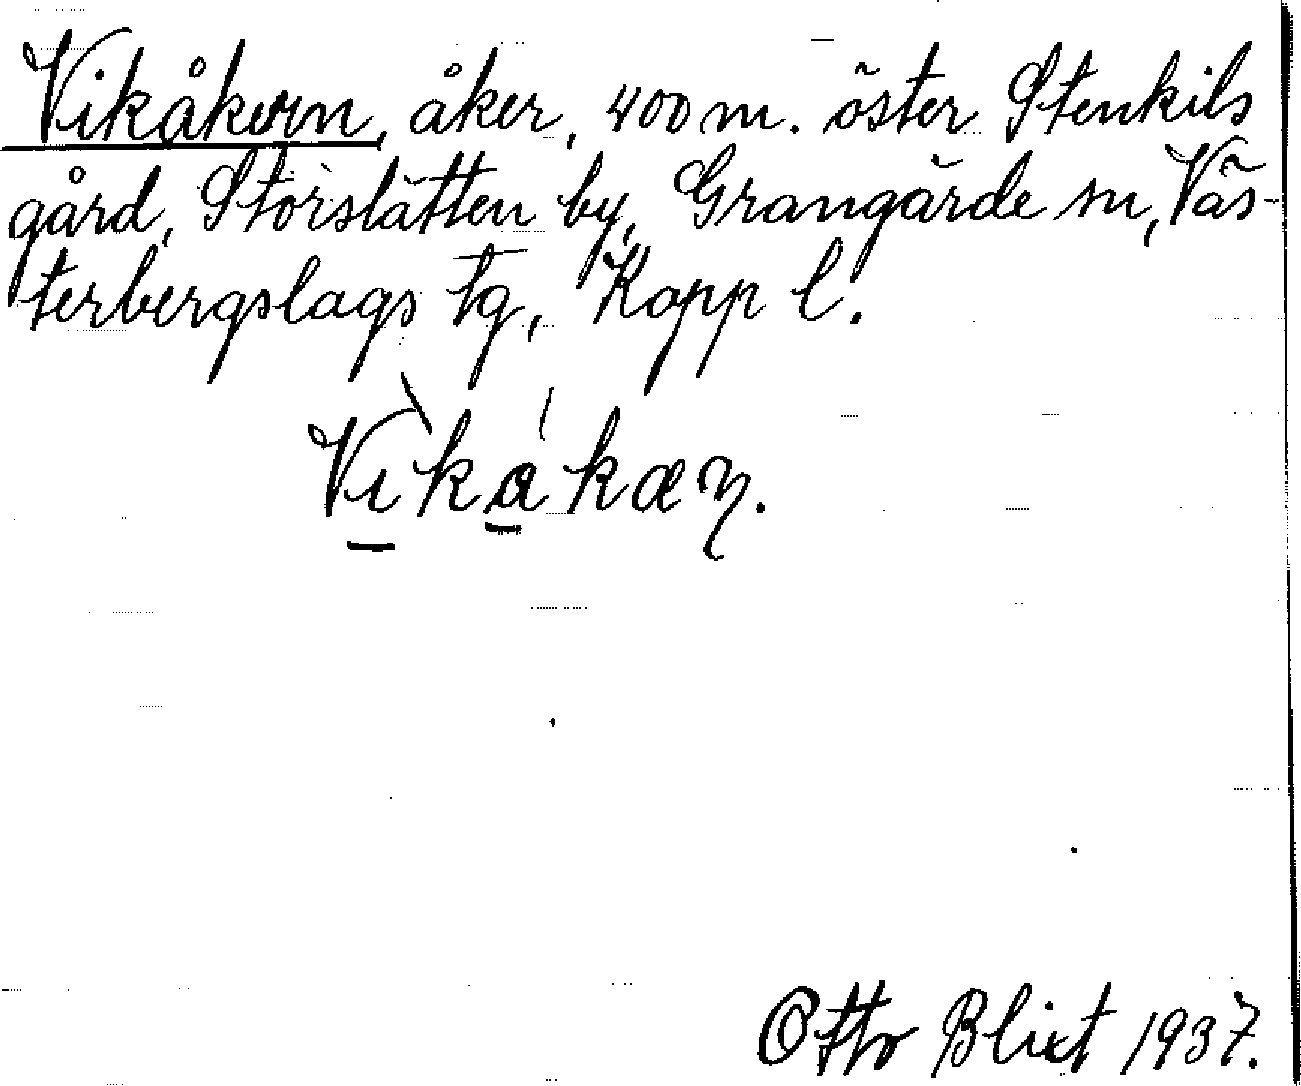 Vikåkern, åker, 400 m. öster Stenkils
gård, Storslätten by, Grangärde sn, Väs-
terbergslags tg, Kopp l.
Vikakæn.
Otto Blixt 1937.